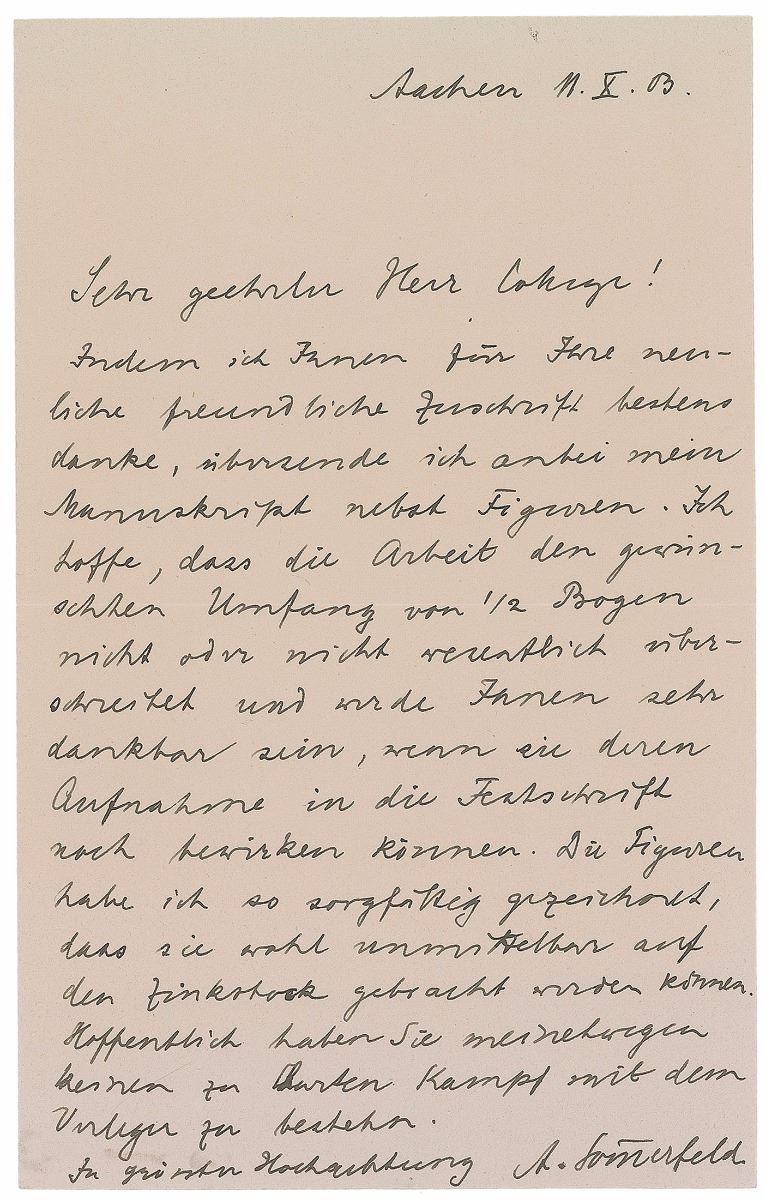 Aachen 11. X. 03.
Sehr geehrter Herr College!
Indem ich Ihnen für Ihre neu-
liche freundliche Zuschrift bestens
danke, übersende ich anbei mein
Manuskript nebst Figuren. Ich
hoffe, dass die Arbeit den gewün-
schten Umfang von 1/2 Bogen
nicht oder nicht wesentlich über-
schreitet und werde Ihnen sehr
dankbar sein, wenn sie deren
Aufnahme in die Festschrift
noch bewirken können. Die Figuren
habe ich so sorgfältig gezeichnet,
dass sie wohl unmittelbar auf
den Zinkstock gebracht werden können.
Hoffentlich haben Sie meinetwegen
keinen zu harten Kampf mit dem
Verleger zu bestehn.
In grösster Hochachtung A. Som̅erfeld.